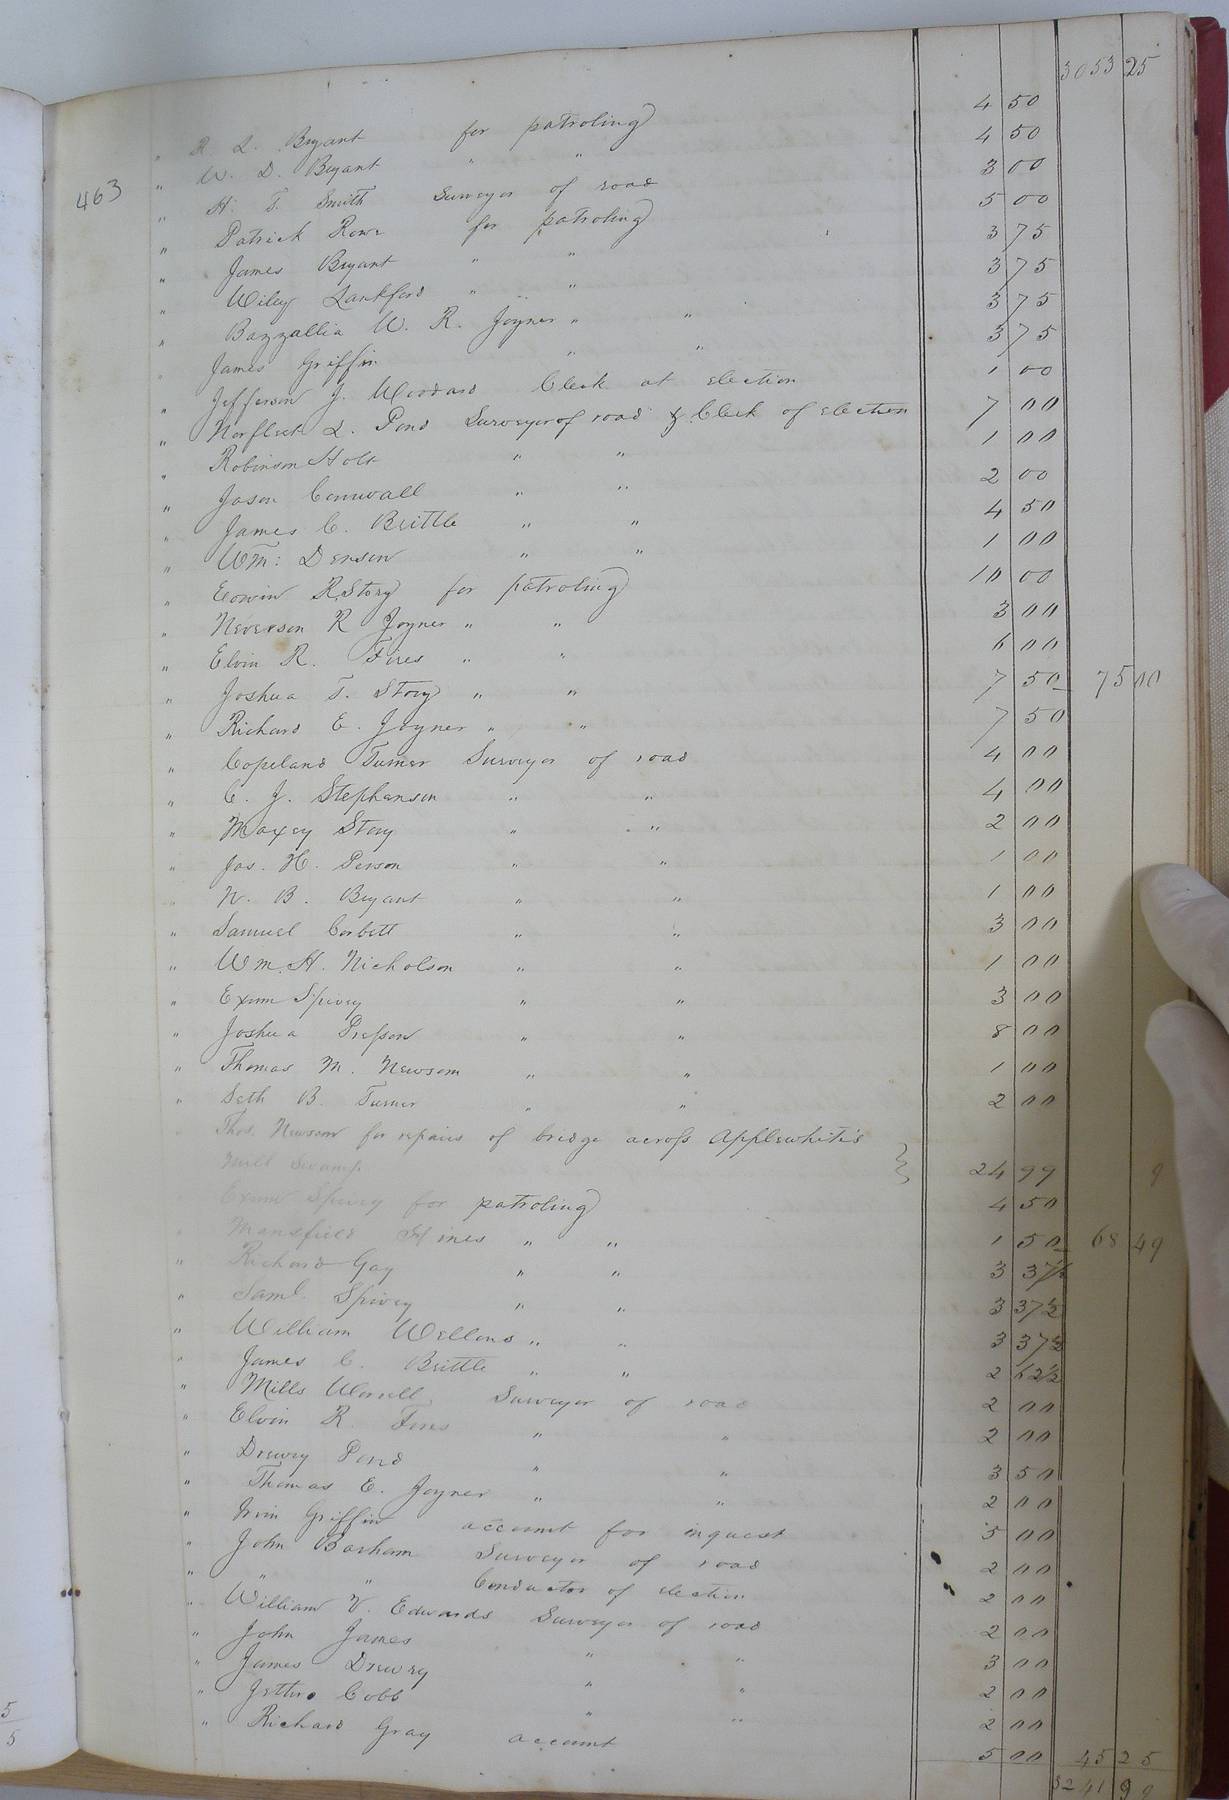 3053 25
463
" R. L. Bryant for patroling 4 50
" W. D. Bryant " " 4 50
" H. T. Smith Surveyor of road 3 00
" Patrick Rowe for patroling 5 00
" James Bryant " " 3 75
" Wiley Lankford " " 3 75
" Bazzallia W. R. Joyner " " 3 75
" James Griffin " " 3 75
" Jefferson J. Woodard Clerk at election 1 00
" Norfleet L. Pond Surveyor of road & Clerk of election 7 00
" Robinson Holt " " 1 00
" Jason Cornwall " " 2 00
" James C. Brittle " " 4 50
" Wm: Denson " " 1 00
" Edwin R. Story for patroling 10 00
" Neverson R Joyner " " 3 00
" Elvin R. Fires " " 6 00
" Joshua T. Story " " 7 50 75 00
" Richard E. Joyner " " 7 50
" Copeland Turner Surveyor of road 4 00
" C. J. Stephenson " " 4 00
" Maxey Story " " 2 00
" Jas. H. Person " " 1 00
" N. B. Bryant " " 1 00
" Samuel Corbett " " 3 00
" Wm. H. Nicholson " " 1 00
" Exum Spivey " " 3 00
" Joshua Presson " " 8 00
" Thomas M. Newsom " " 1 00
" Seth B. Turner " " 2 00
" Thos. Newsom for repairs of bridge across Applewhite's
Mill Swamp 24 99 9
" Exum Spivey for patroling 4 50
" Mansfield Hines " " 1 50 68 49
" Richard Gay " " 3 37½
" Saml. Spivey " " 3 37½
" William Wellons " " 3 37½
" James C. Brittle " " 2 62½
" Mills Worrell Surveyor of road 2 00
" Elvin R. Fires " " 2 00
" Drewry Pond " " 3 50
" Thomas E. Joyner " " 2 00
" Irvin Griffin account for inquest 5 00
" John Barham Surveyor of road 2 00
" " " Conductor of election 2 00
" William V. Edwards Surveyor of road 2 00
" John James " " 3 00
" James Drewry " " 2 00
" Jethro Cobb " " 2 00
" Richard Gray account 5 00 45 25
3241 99
5
5